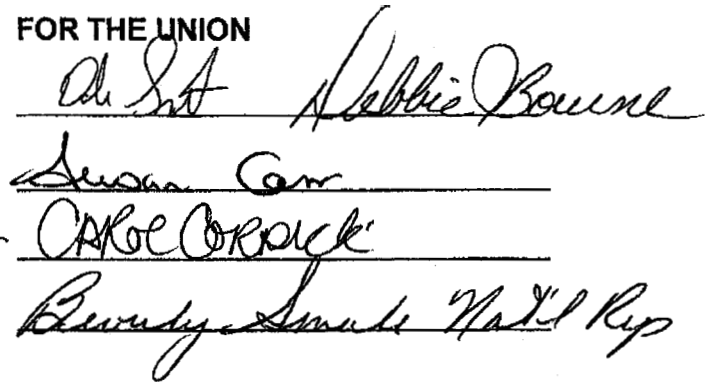 FOR THE UNION
Debbie Bourne
Susan Carr
CAROL CORDICK
Beverly Nat'l Rep